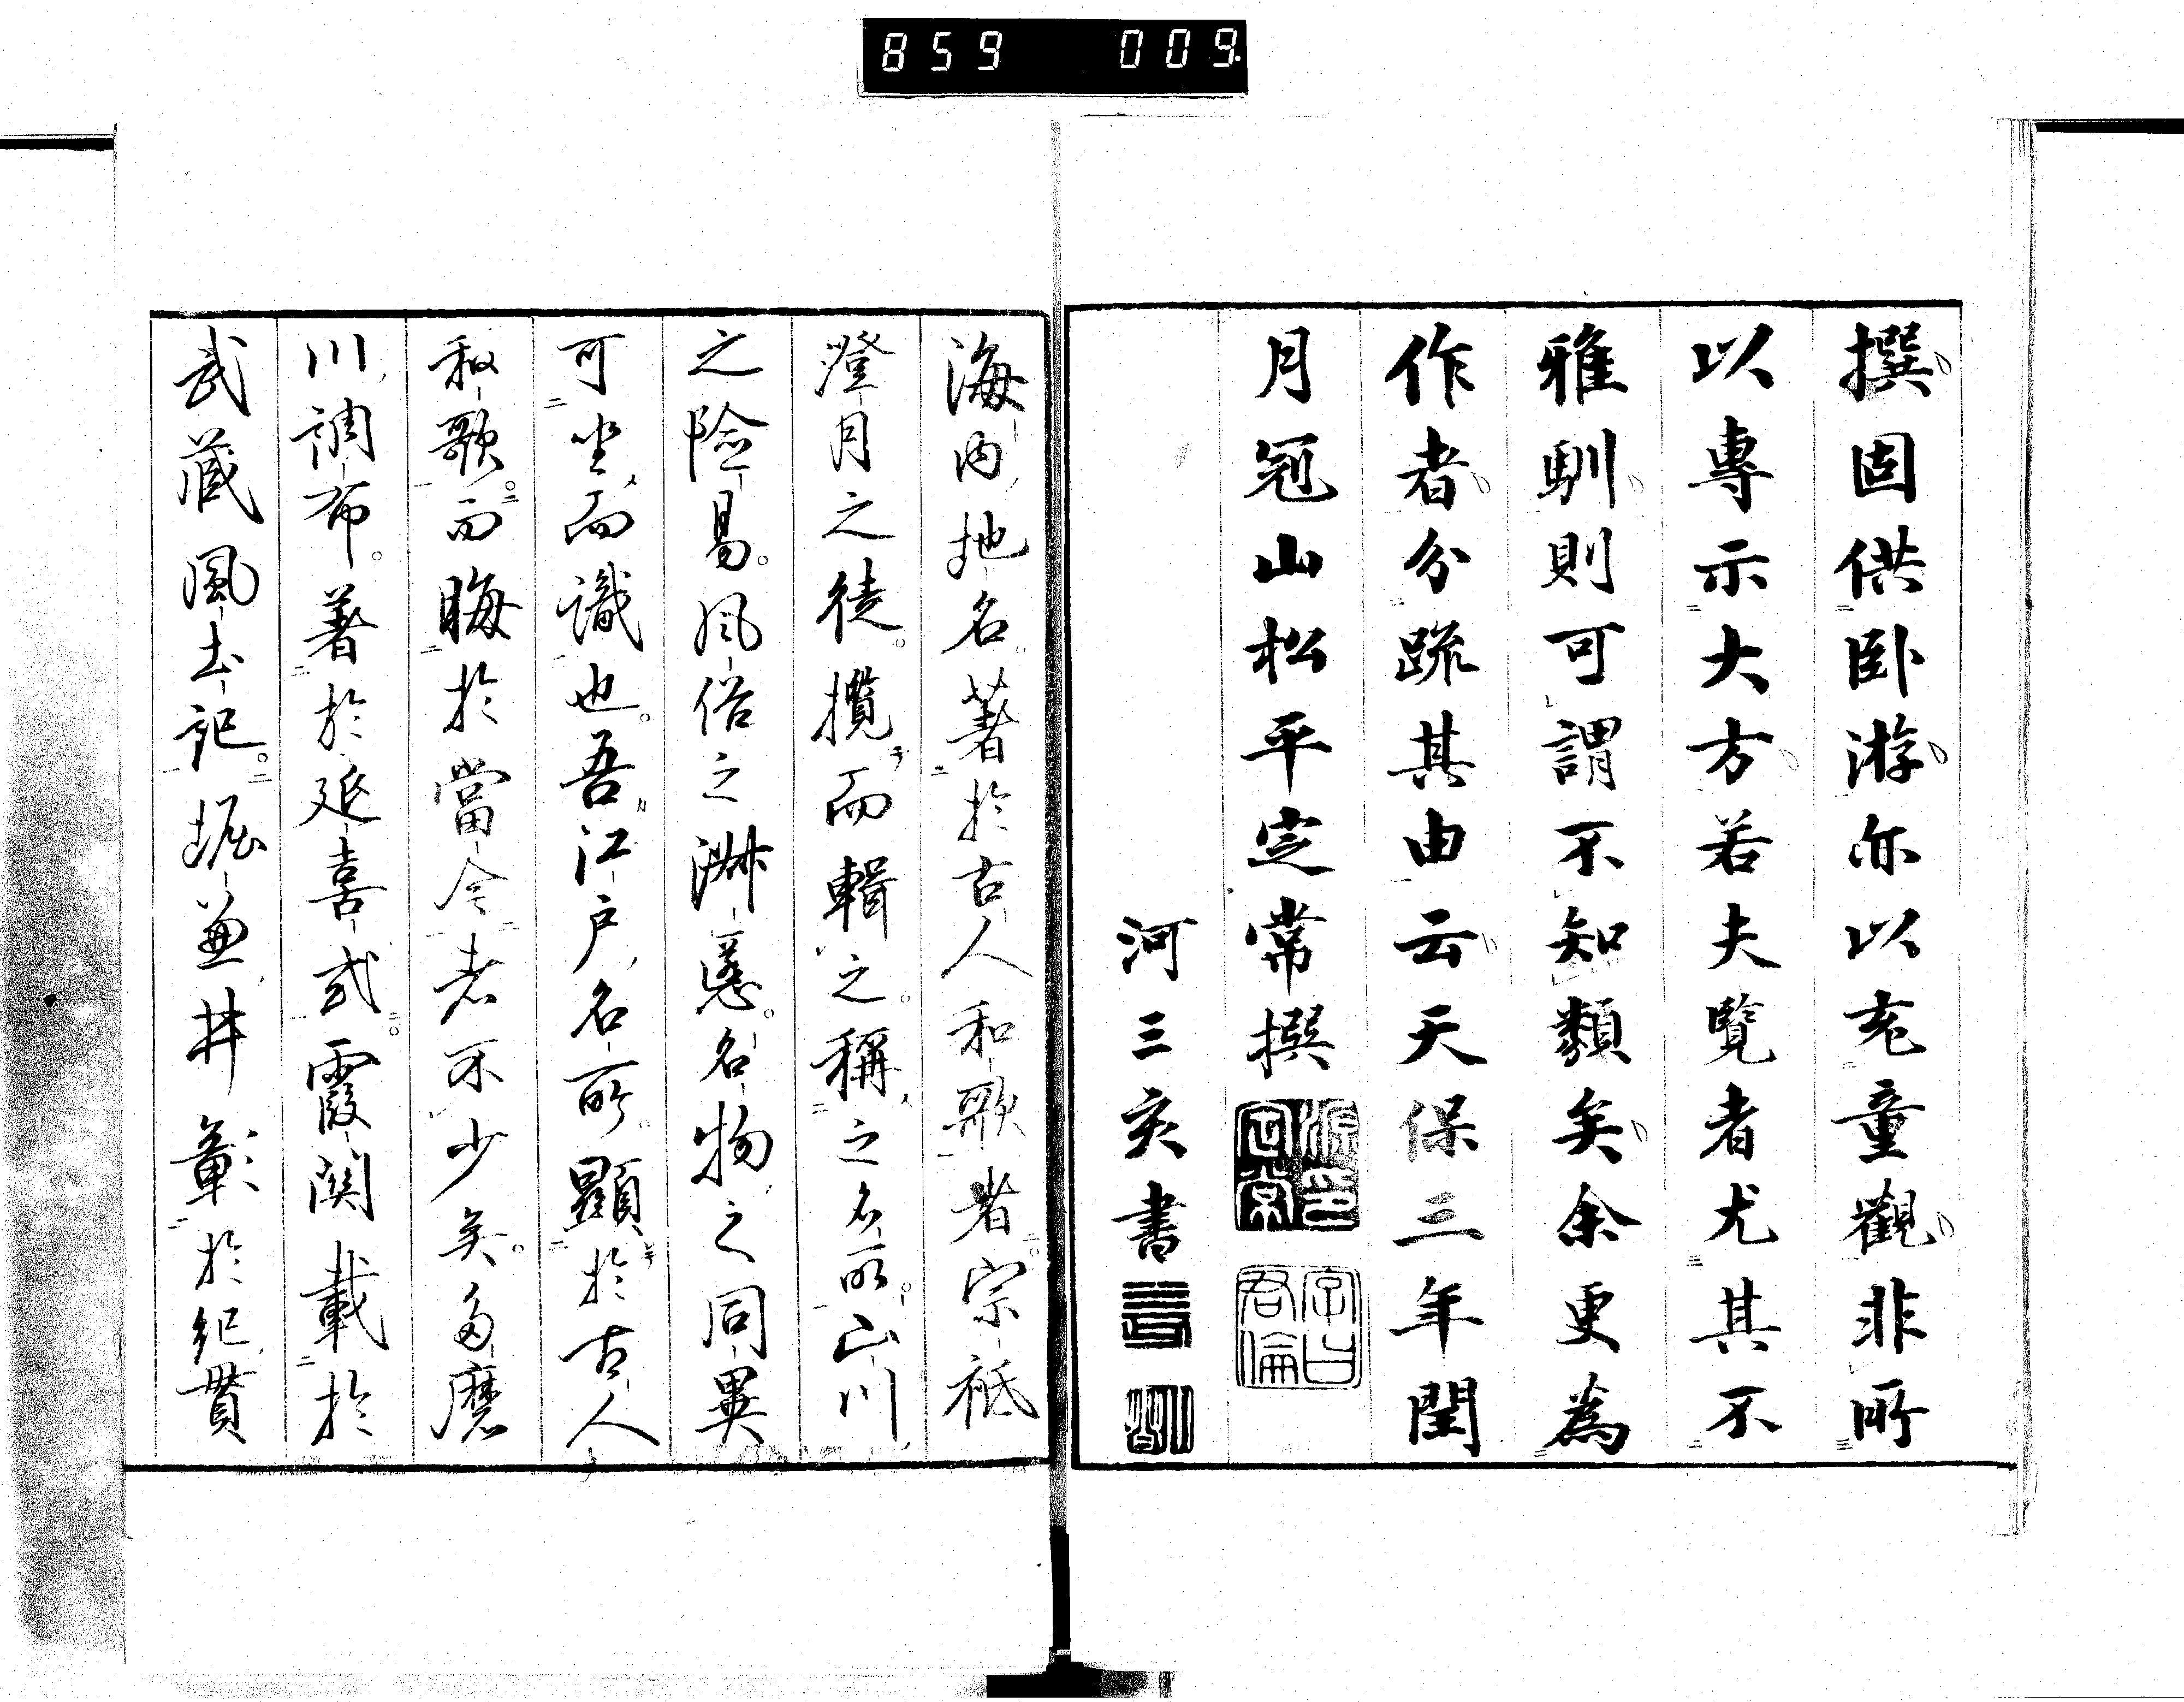 859 009
撰固供臥游亦以充童觀非所
以專示大方若夫覽者尤其不
雅馴則可謂不知類矣余更為
作者分疏其由云天保三年閏
月冠山松平定常撰
河三亥書
海内地名著於古人和歌者宗祗
澄月之徒攬而輯之稱之名所山川
之險易風俗之淋慝名物之同異
可坐而識也吾江戶名所顯於古人
和歌而晦於當今者不少矣多麽
川調布著於延喜式霞関載於
武藏風土記堀兼井彰於紀貫